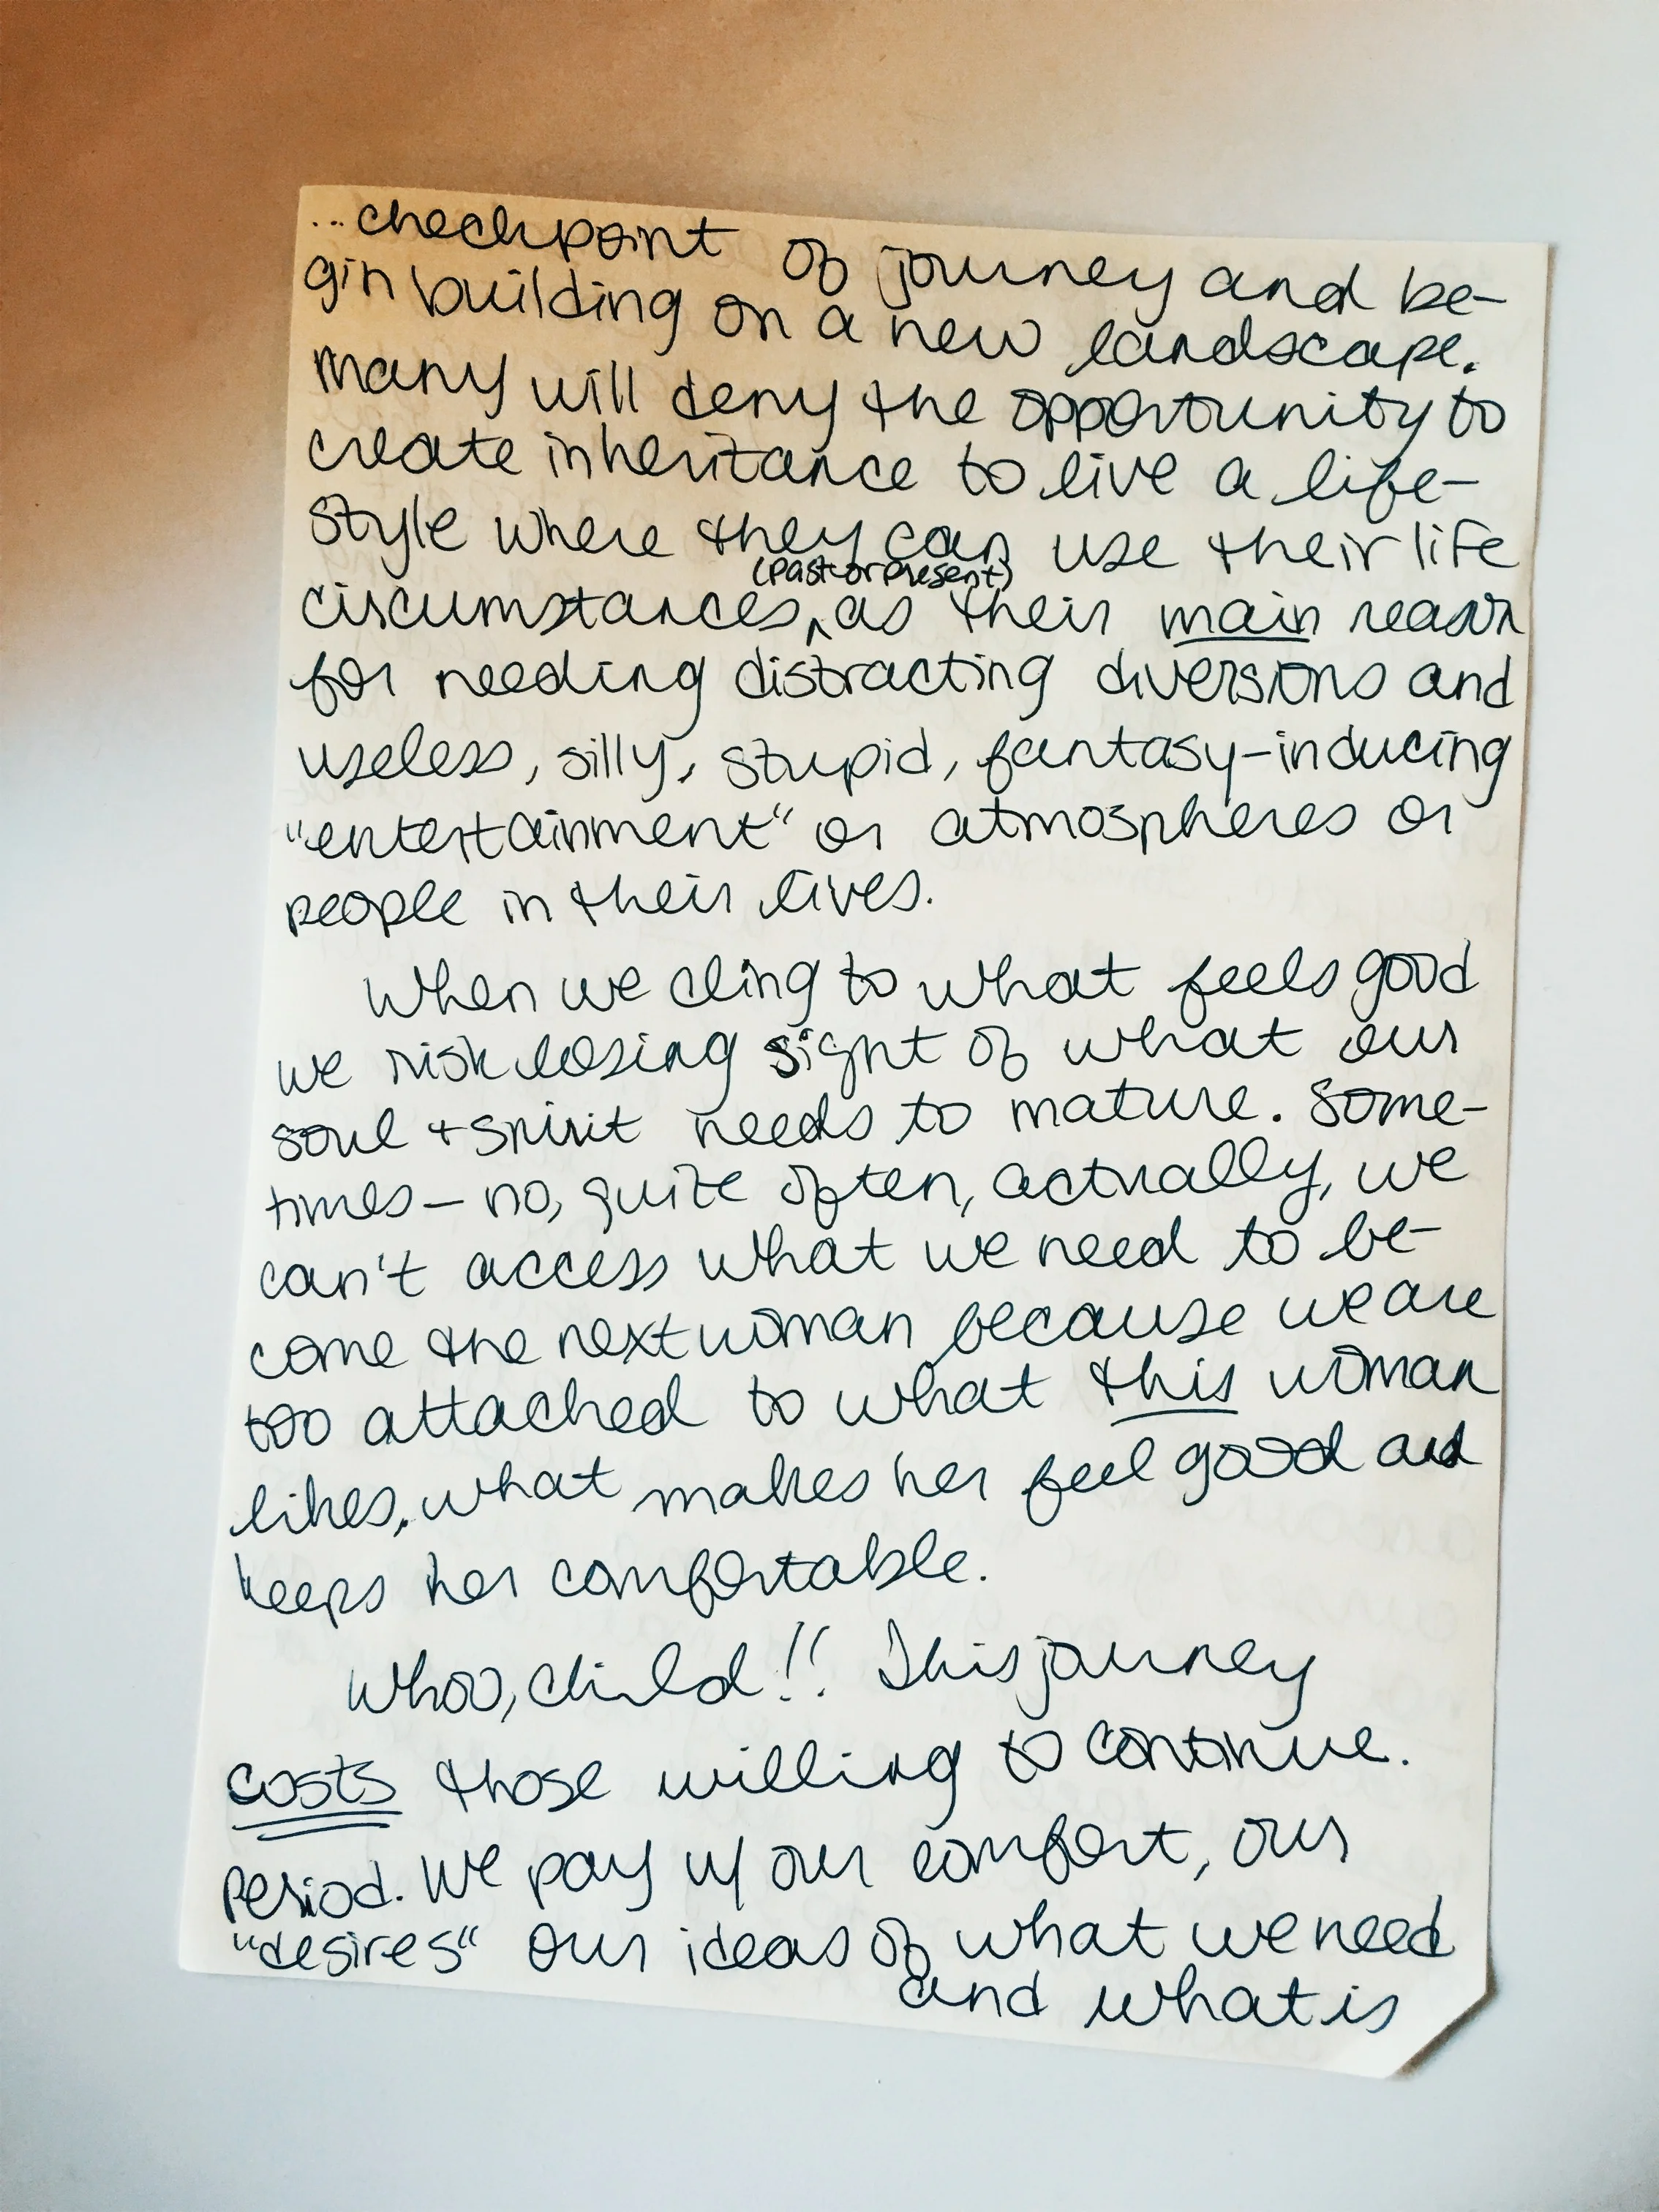 ...checkpoint of journey and be-
gin building on a new landscape.
Many will deny the opportunity to
create inheritance to live a life-
style where they can use their life
(past or present)
circumstances, ^ as their main reason
for needing distracting diversions and
useless, silly, stupid, fantasy-inducing
"entertainment" or atmospheres or
people in their lives.
When we cling to what feels good
we risk losing sight of what our
soul + spirit needs to mature. Some-
times - no, quite often, actually, we
can't access what we need to be-
come the next woman because we are
too attached to what this woman
likes, what makes her feel good and
keeps her comfortable.
Whoo, child!! This journey
costs those willing to continue.
Period. We pay w/ our comfort, our
"desires" our ideas of what we need
and what is